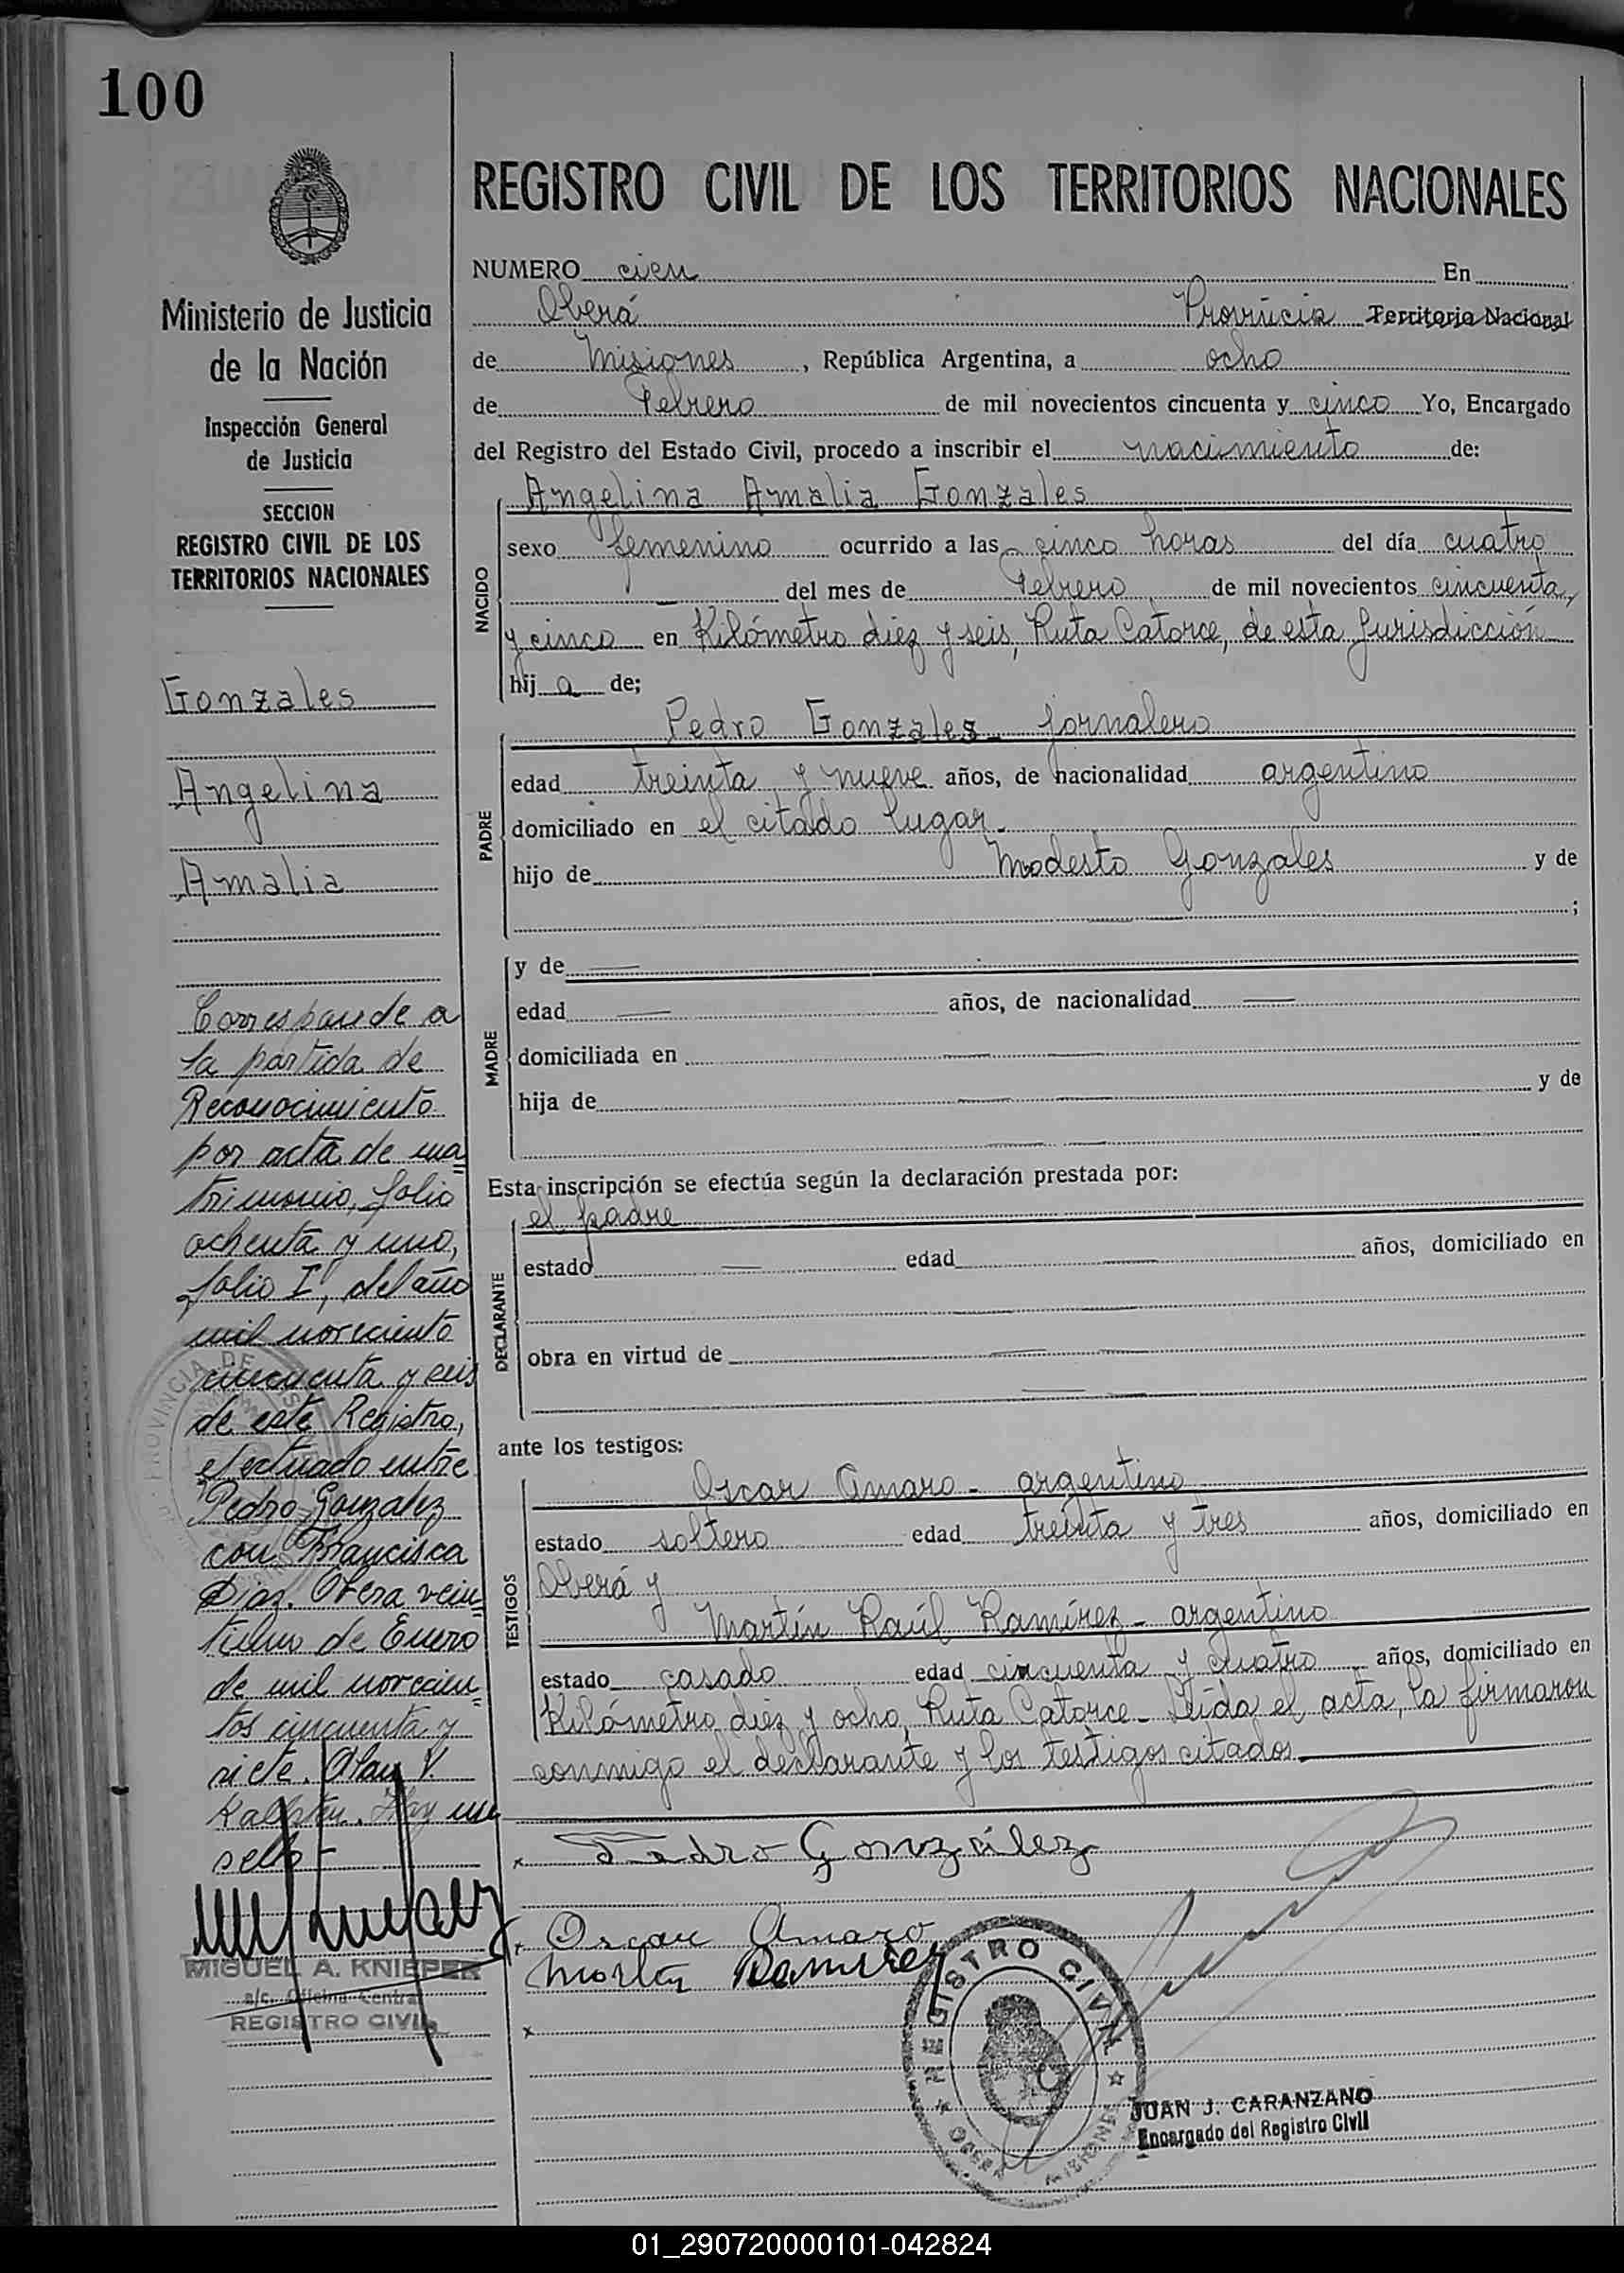 100
Ministerio de Justicia
de la Nación
Inspección General
de Justicia
SECCION
REGISTRO CIVIL DE LOS
TERRITORIOS NACIONALES
Gonzales
Angelina
Amalia
Corresponde a
la partida de
Reconocimiento
por acta de ma
trimonio, folio
ochenta y uno,
folio I, del año
mil noveciento
cincuenta y seis
de este Registro,
efectuado entre
Pedro Gonzalez
con Francisca
Diaz. Obera vein
tiuno de Enero
de mil novecien
tos cincuenta y
siete. V.
Hay un
sello -
MIGUEL A. KNIEPER
a/c. Oficina Central
REGISTRO CIVIL
REGISTRO CIVIL DE LOS TERRITORIOS NACIONALES
NUMERO cien En
Oberá Provincia Territorio Nacional
de Misiones, República Argentina, a ocho
de Febrero de mil novecientos cincuenta y cinco Yo, Encargado
del Registro del Estado Civil, procedo a inscribir el nacimiento de:
NACIDO
Angelina Amalia Gonzales
sexo femenino ocurrido a las cinco horas del día cuatro
del mes de Febrero de mil novecientos cincuenta
y cinco en Kilómetro diez y seis, Ruta Catorce, de esta Jurisdicción
hij a de;
PADRE
Pedro Gonzales - jornalero
edad treinta y nueve años, de nacionalidad argentino
domiciliado en el citado lugar.
hijo de Modesto Gonzales y de
;
MADRE
y de
edad años, de nacionalidad
domiciliada en
hija de y de
Esta inscripción se efectúa según la declaración prestada por:
DECLARANTE
el padre
estado edad años, domiciliado en
obra en virtud de
ante los testigos:
TESTIGOS
Oscar Amaro - argentino
estado soltero edad treinta y tres años, domiciliado en
Oberá y
Martín Raúl Ramírez - argentino
estado casado edad cincuenta y cuatro años, domiciliado en
Kilómetro diez y ocho, Ruta Catorce - Leída el acta, la firmaron
conmigo el declarante y los testigos citados.
x Pedro González
x Oscar Amaro
Martin Ramirez
x
REGISTRO CIVIL
OBERA MISIONES
JUAN J. CARANZANO
Encargado del Registro Civil
01_290720000101-042824